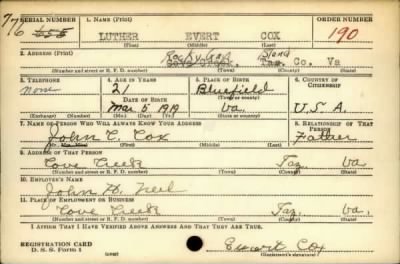 SERIAL NUMBER 1. NAME (Print) ORDER NUMBER
776 LUTHER EVERT COX 190
(First) (Middle) (Last)
2. ADDRESS (Print)
Rocky Gap Bland Co. Va
(Number and street or R. F. D. number) (Town) (County) (State)
3. TELEPHONE 4. AGE IN YEARS 5. PLACE OF BIRTH 6. COUNTRY OF CITIZENSHIP
None 21 Bluefield
DATE OF BIRTH (Town or county)
Mar. 5 1919 Va. U.S.A.
(Exchange) (Number) (Mo.) (Day) (Yr.) (State or country)
7. NAME OF PERSON WHO WILL ALWAYS KNOW YOUR ADDRESS 8. RELATIONSHIP OF THAT PERSON
John C. Cox Father
9. ADDRESS OF THAT PERSON
Cove Creek Taz. Va.
(Number and street or R. F. D. number) (Town) (County) (State)
10. EMPLOYER'S NAME
John H. Neel
11. PLACE OF EMPLOYMENT OR BUSINESS
Cove Creek Taz. Va.
(Number and street or R. F. D. number) (Town) (County) (State)
I AFFIRM THAT I HAVE VERIFIED ABOVE ANSWERS AND THAT THEY ARE TRUE.
REGISTRATION CARD
D. S. S. Form 1 (over) Evert Cox
(Registrant's signature)